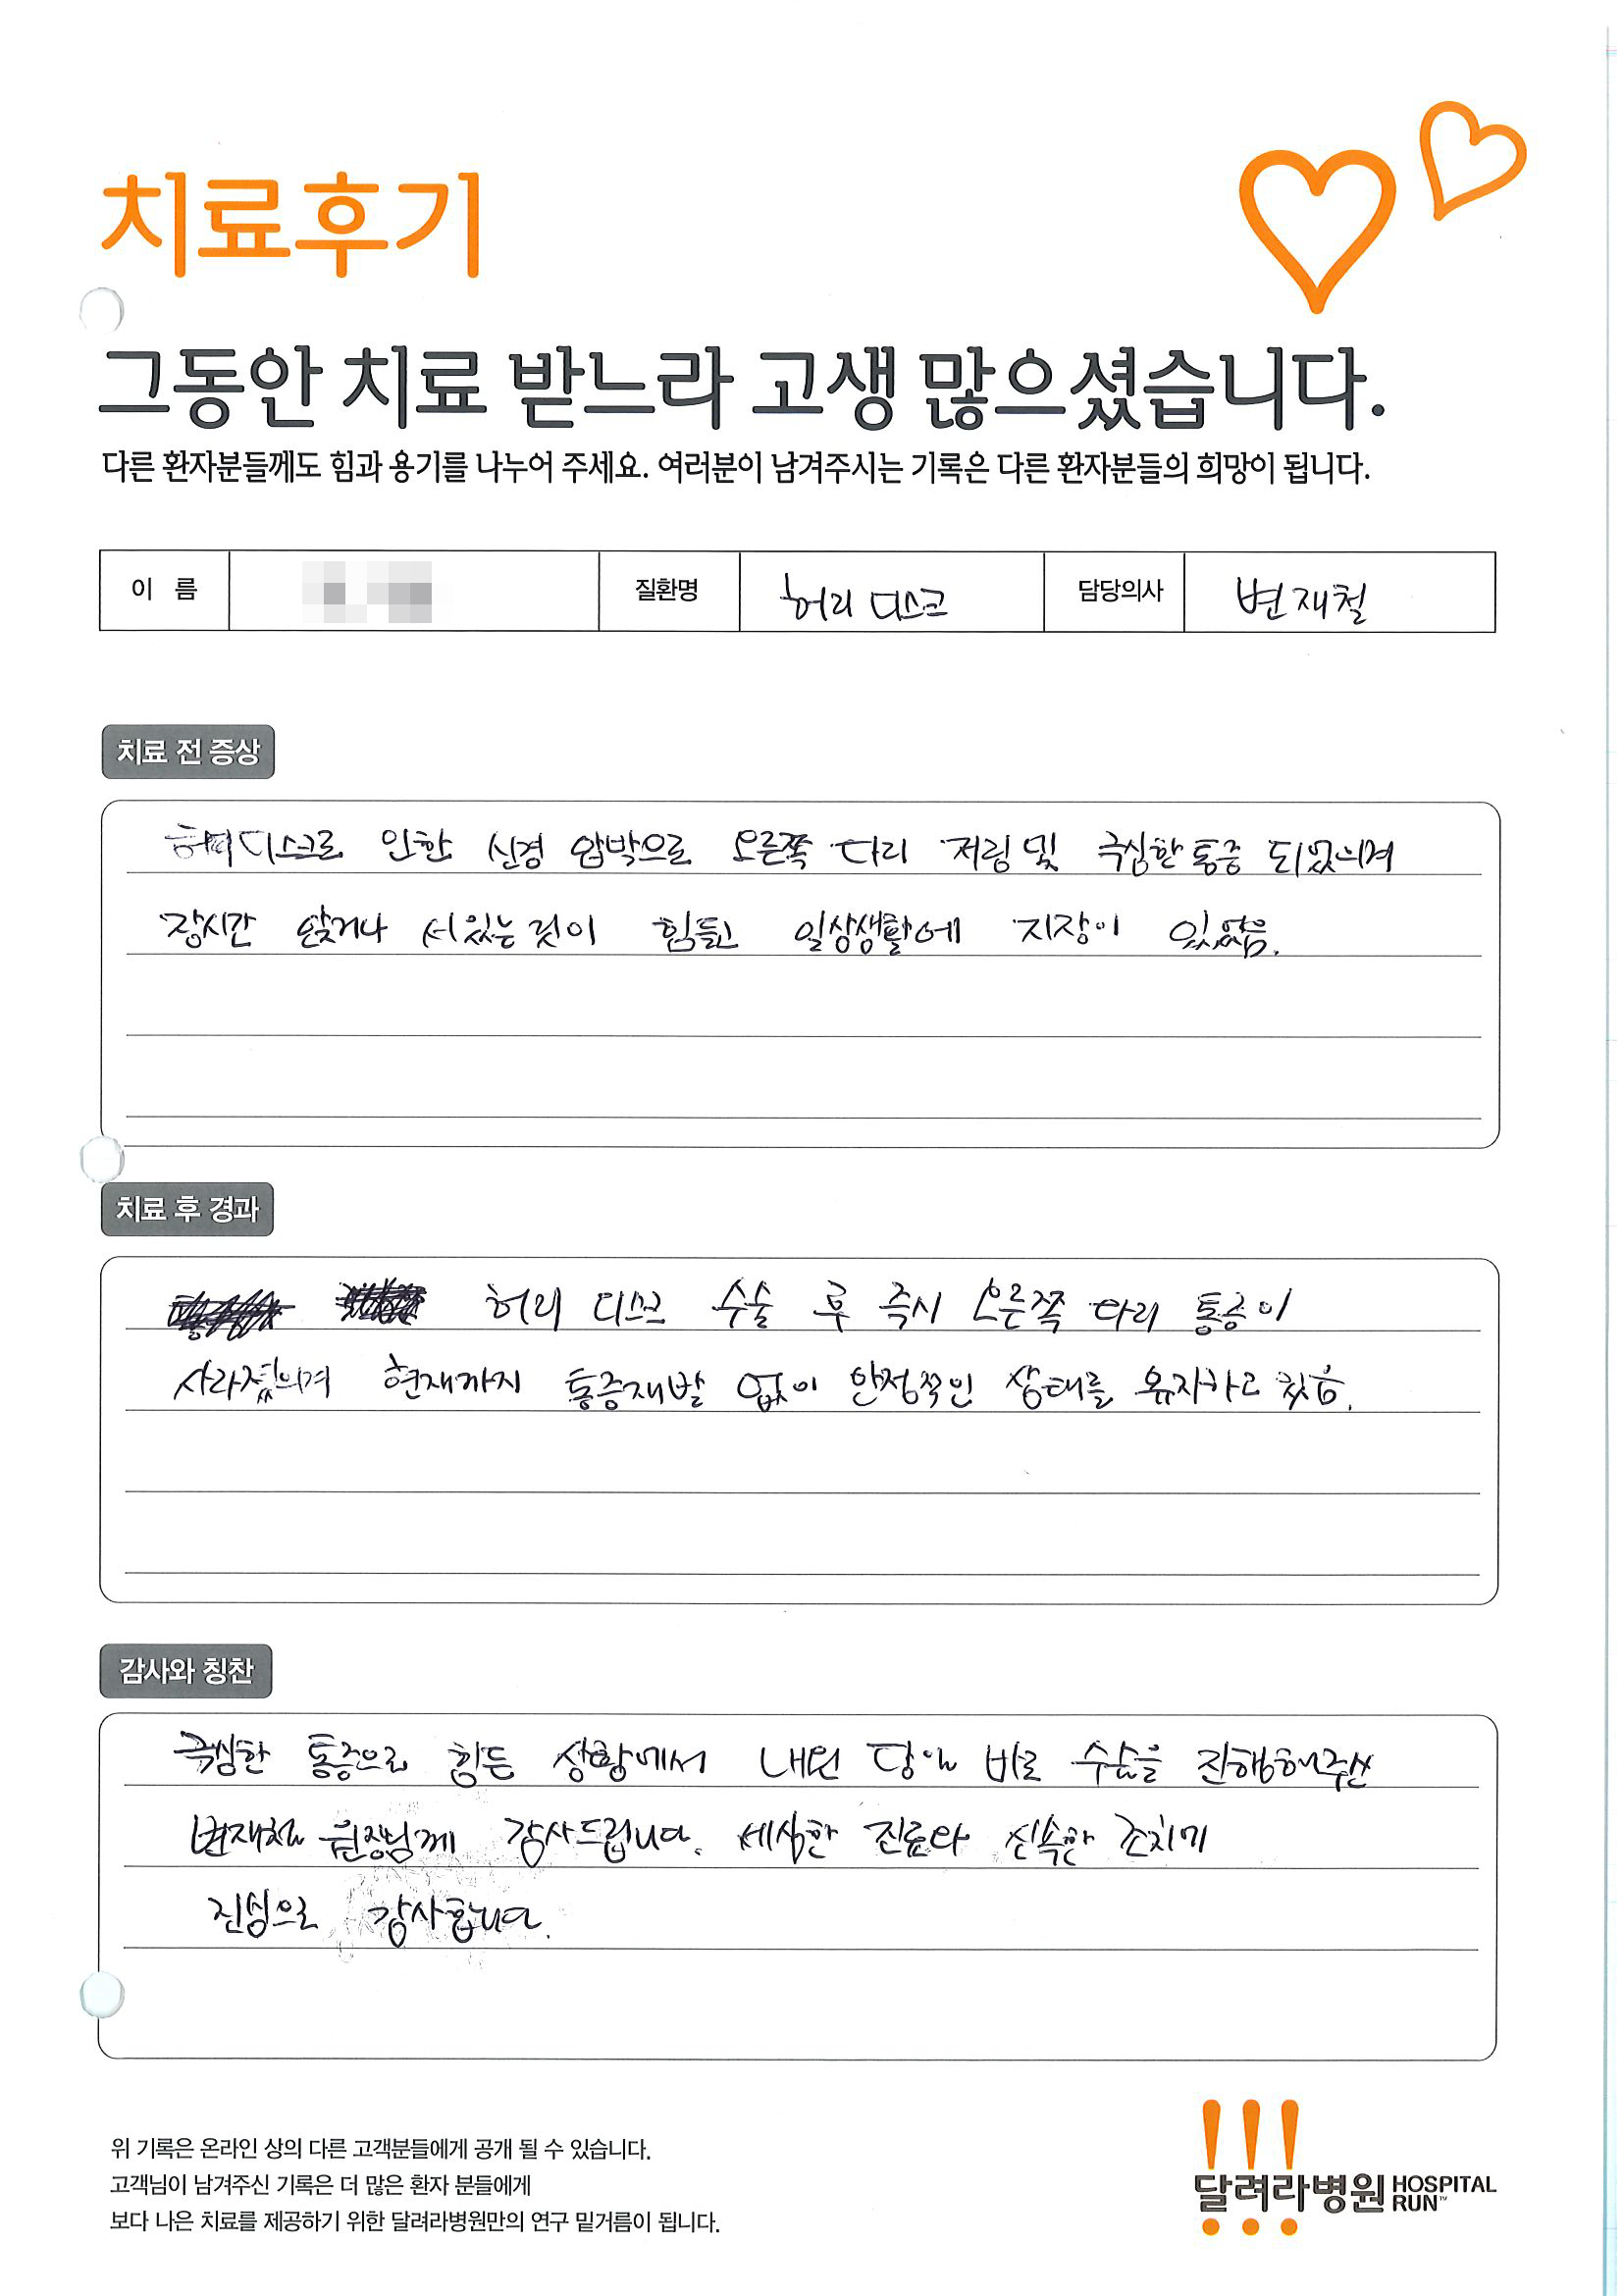 치료후기
그동안 치료 받느라 고생 많으셨습니다.
다른 환자분들께도 힘과 용기를 나누어 주세요. 여러분이 남겨주시는 기록은 다른 환자분들의 희망이 됩니다.
이 름 질환명 허리 디스크 담당의사 변재철
치료 전 증상
허리디스크로 인한 신경 압박으로 오른쪽 다리 저림 및 극심한 통증
장시간 앉거나 서있는 것이 힘들고 일상생활에 지장이 있었음.
치료 후 경과
허리 디스크 수술 후 즉시 오른쪽 다리 통증이
사라졌으며 현재까지 통증재발 없이 안정적인 상태를 유지하고 있음.
감사와 칭찬
극심한 통증으로 힘든 상황에서 내원 당일 바로 수술을 진행해주신
변재철 원장님께 감사드립니다. 세심한 진료와 신속한 조치에
진심으로 감사합니다.
위 기록은 온라인 상의 다른 고객분들에게 공개 될 수 있습니다.
고객님이 남겨주신 기록은 더 많은 환자 분들에게
보다 나은 치료를 제공하기 위한 달려라병원만의 연구 밑거름이 됩니다.
달려라병원 HOSPITAL RUN™